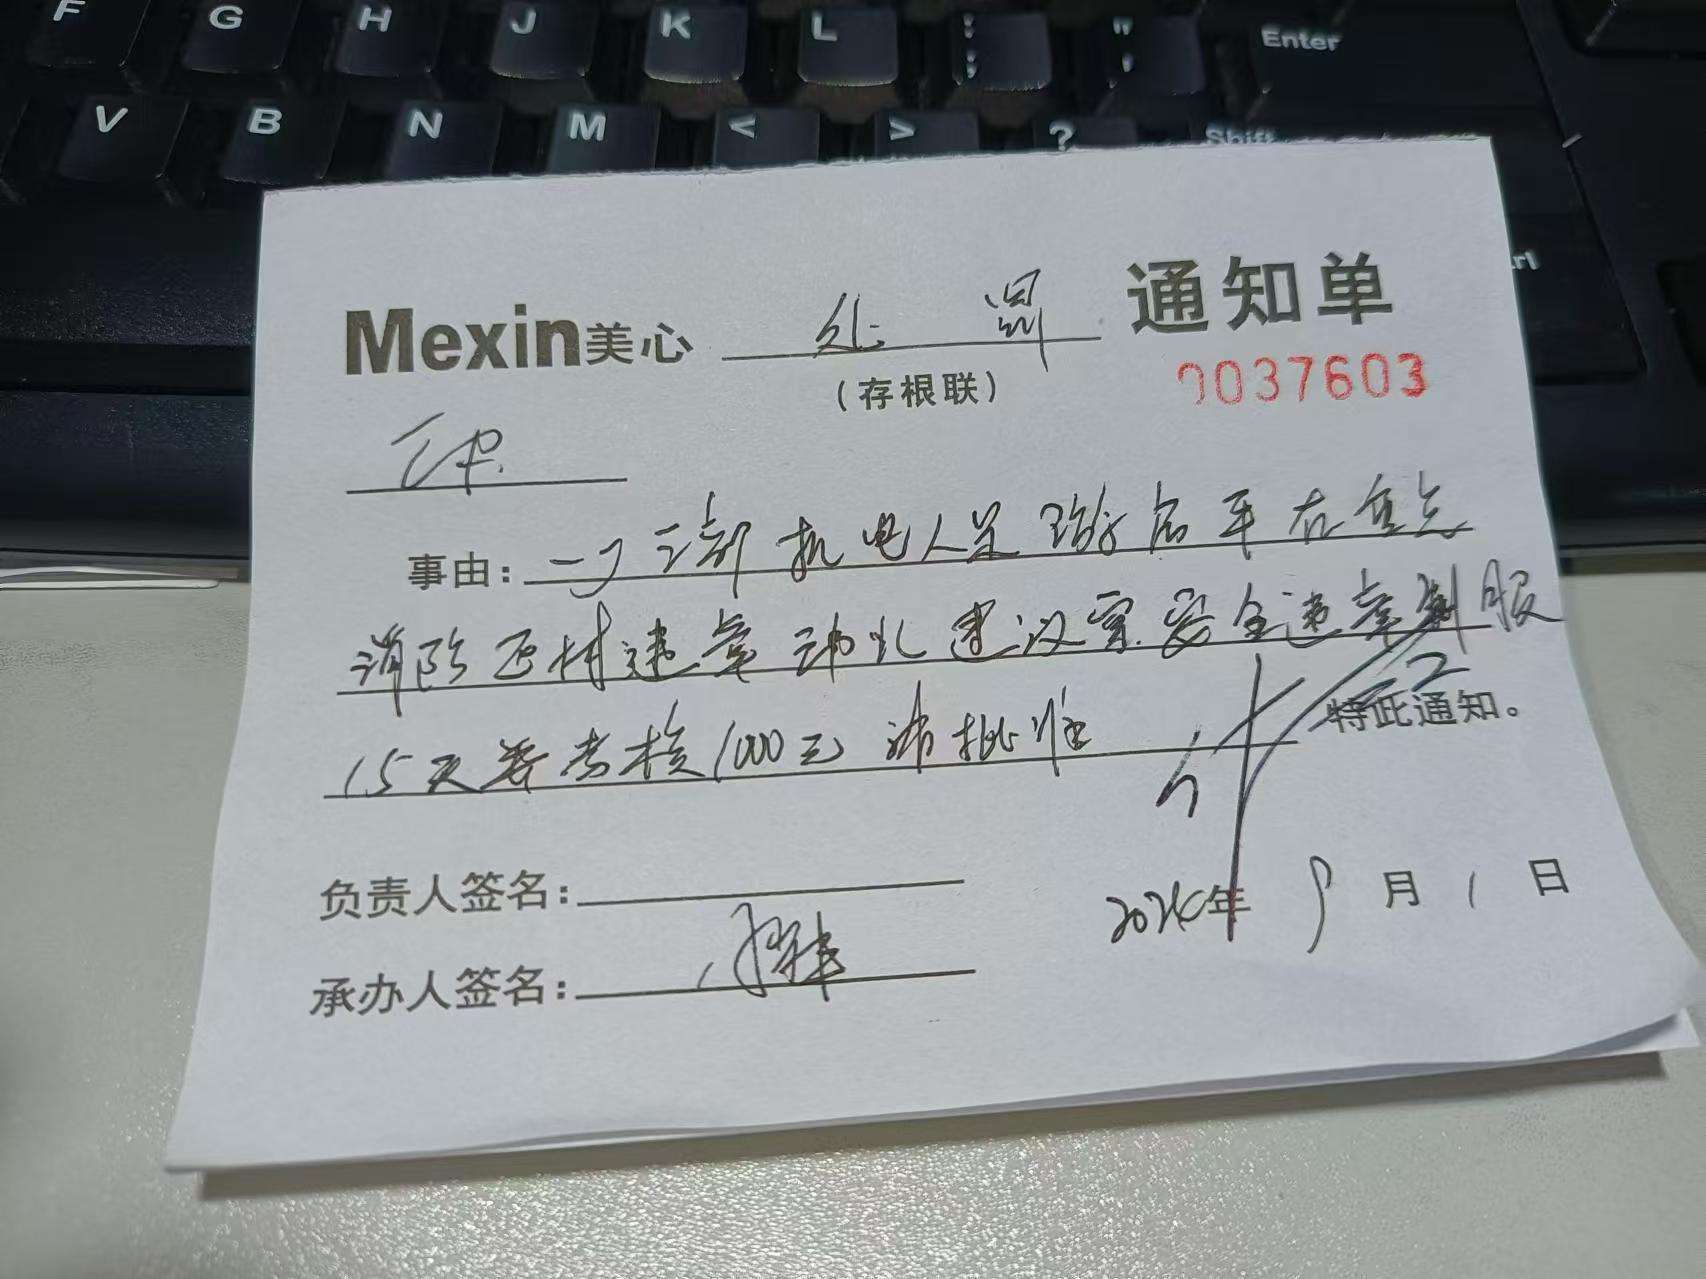 F G H J K L : ; " ' Enter
V B N M < > ? Shift
Mexin美心 处罚 通知单
(存根联)
0037603
事由: 机电人员 在重点
消防区 违章动火建议穿安全违章制服
15天并考核1000元 请批准
特此通知。
负责人签名:
年 9 月 1 日
承办人签名: